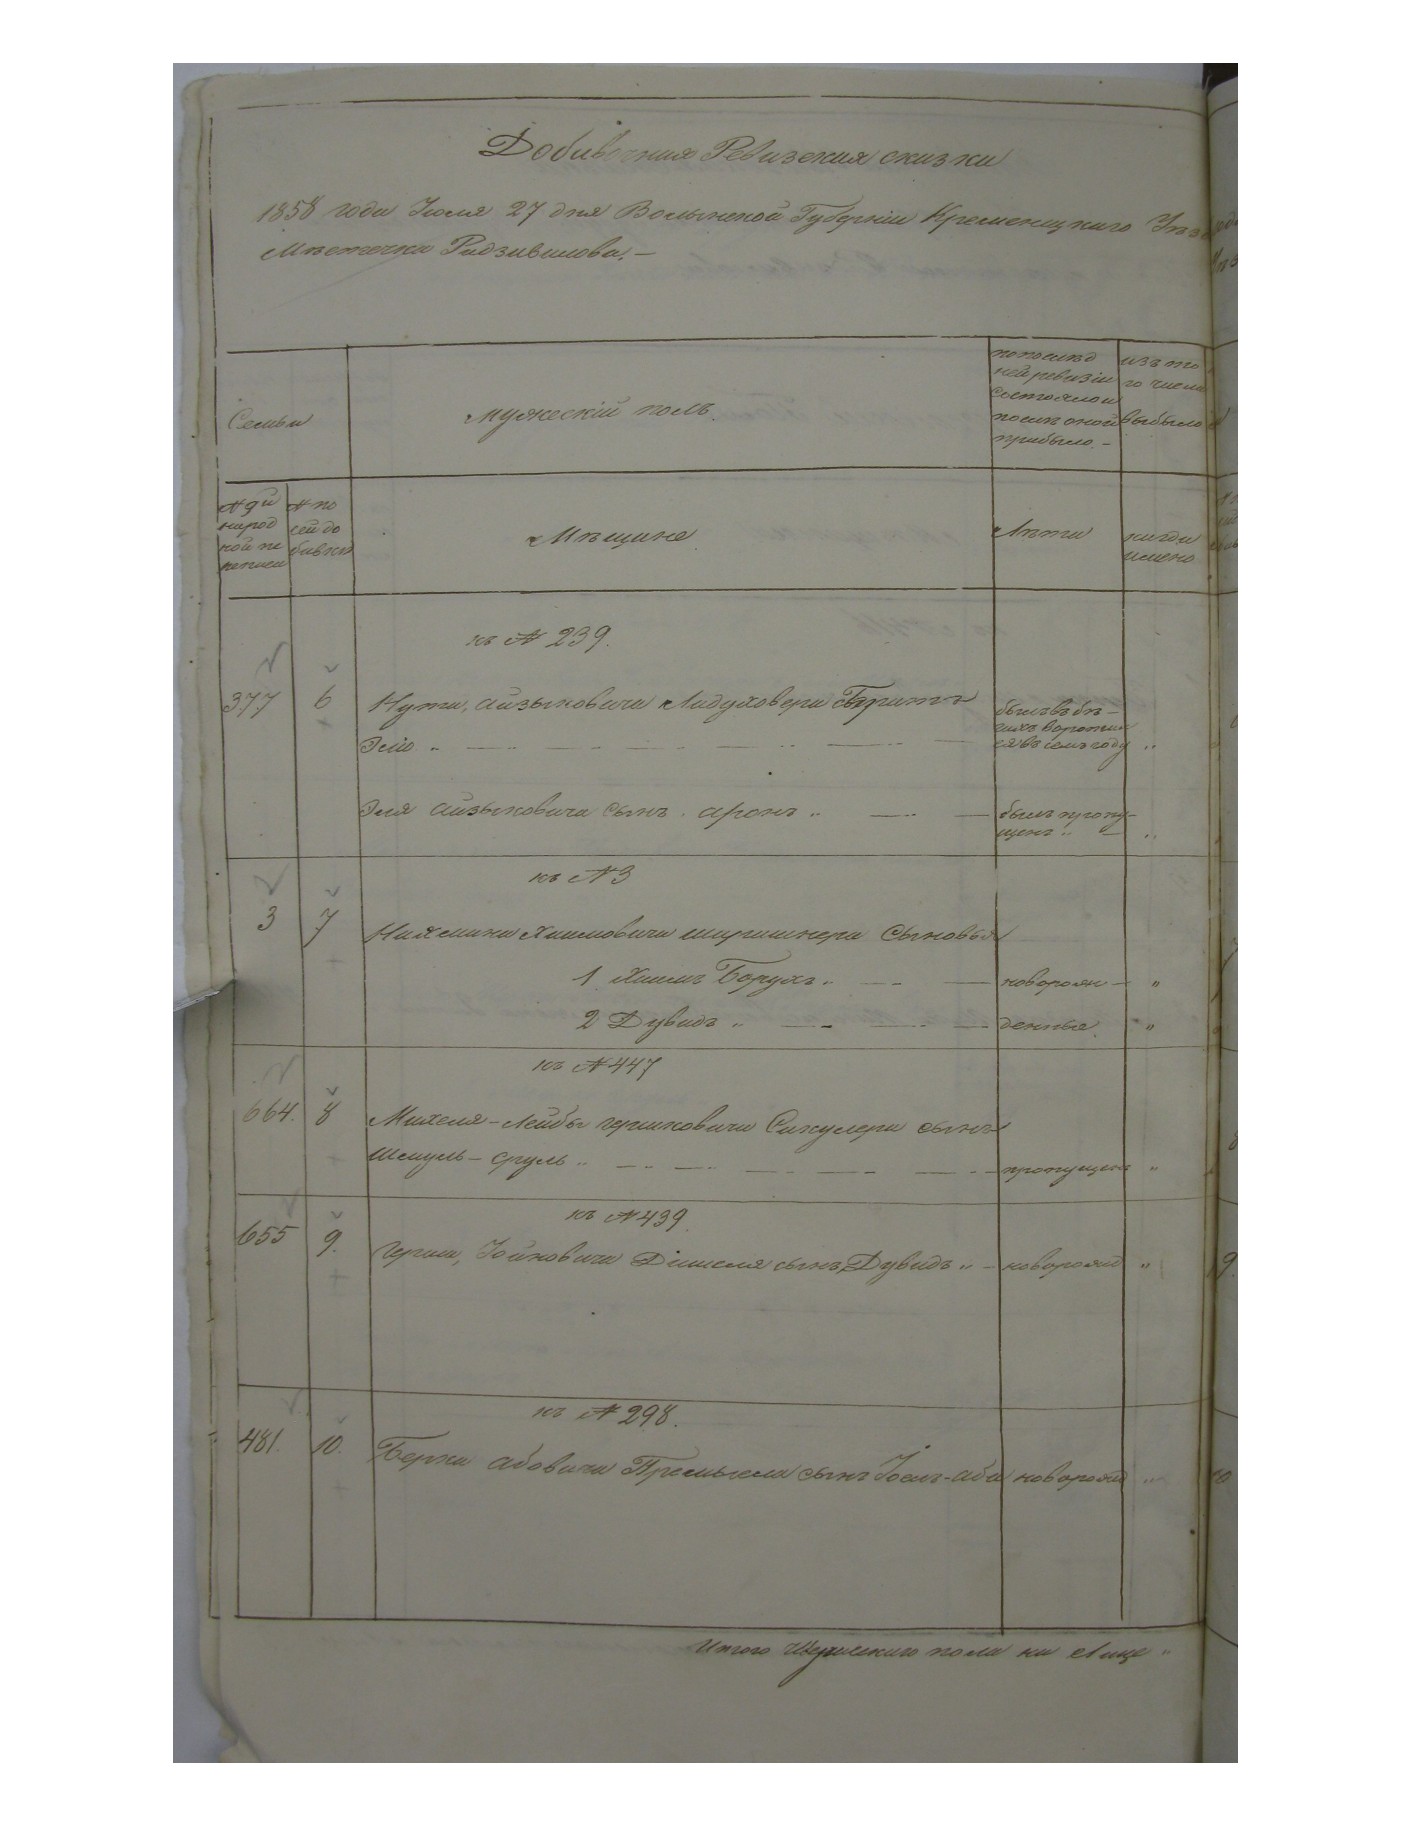 Добавочная Ревизская сказка
1858 года Іюля 27 дня Волынской Губерніи Кременецкаго Уѣз
Мѣстечка Радзивилова. —
Семьи
Мужескій полъ.
по послѣд
ней ревизіи
состояло и
послѣ оной
прибыло. —
изъ то
го числа
выбыло
№ 9й
народ
ной пе
реписи
№ по
сей до
бавки
Мѣщане
Лѣта
когда
имено
къ № 239.
377 6 Нута, Айзыковича Ладуховера братъ
Элiо „ былъ въ бѣ-
гахъ воротил
ся въ семъ году „
Эля Айзыковича сынъ. Аронъ „ былъ пропу-
щенъ „ — „
къ № 3
3 7 Нахмана Хаимовича сыновья
1 Хаимъ Борухъ „ — новорож — „
2 Дувидъ „ — денные. „
къ № 447
664. 8 Михеля-Лейбы Гершковича Сикулера сынъ
Шмуль-Сруль „ — пропущенъ „
къ № 439.
655 9. Герша, Іойновича сынъ Дувидъ „ — новорожд „
къ № 298.
481. 10. Берка Абовича Премысла сынъ Іоель-Аба новорожд „
Итого Мужескаго пола на Лице „